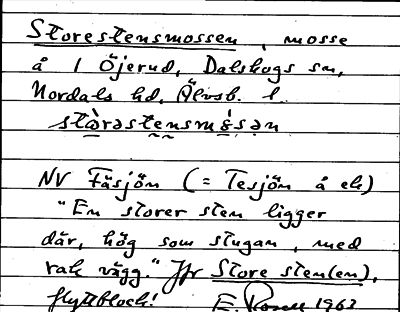 Storestensmossen, mosse
å 1 Öjerud, Dalskogs sn,
Nordals hd, Älvsb. l.
stòrəstensmɷ́sən
NV Fäsjön (= Tesjön å ek)
"En storer sten ligger
där, hög som stugan, med
rak vägg." Jfr Store sten(en),
flyttblock! E. Rosell 1963